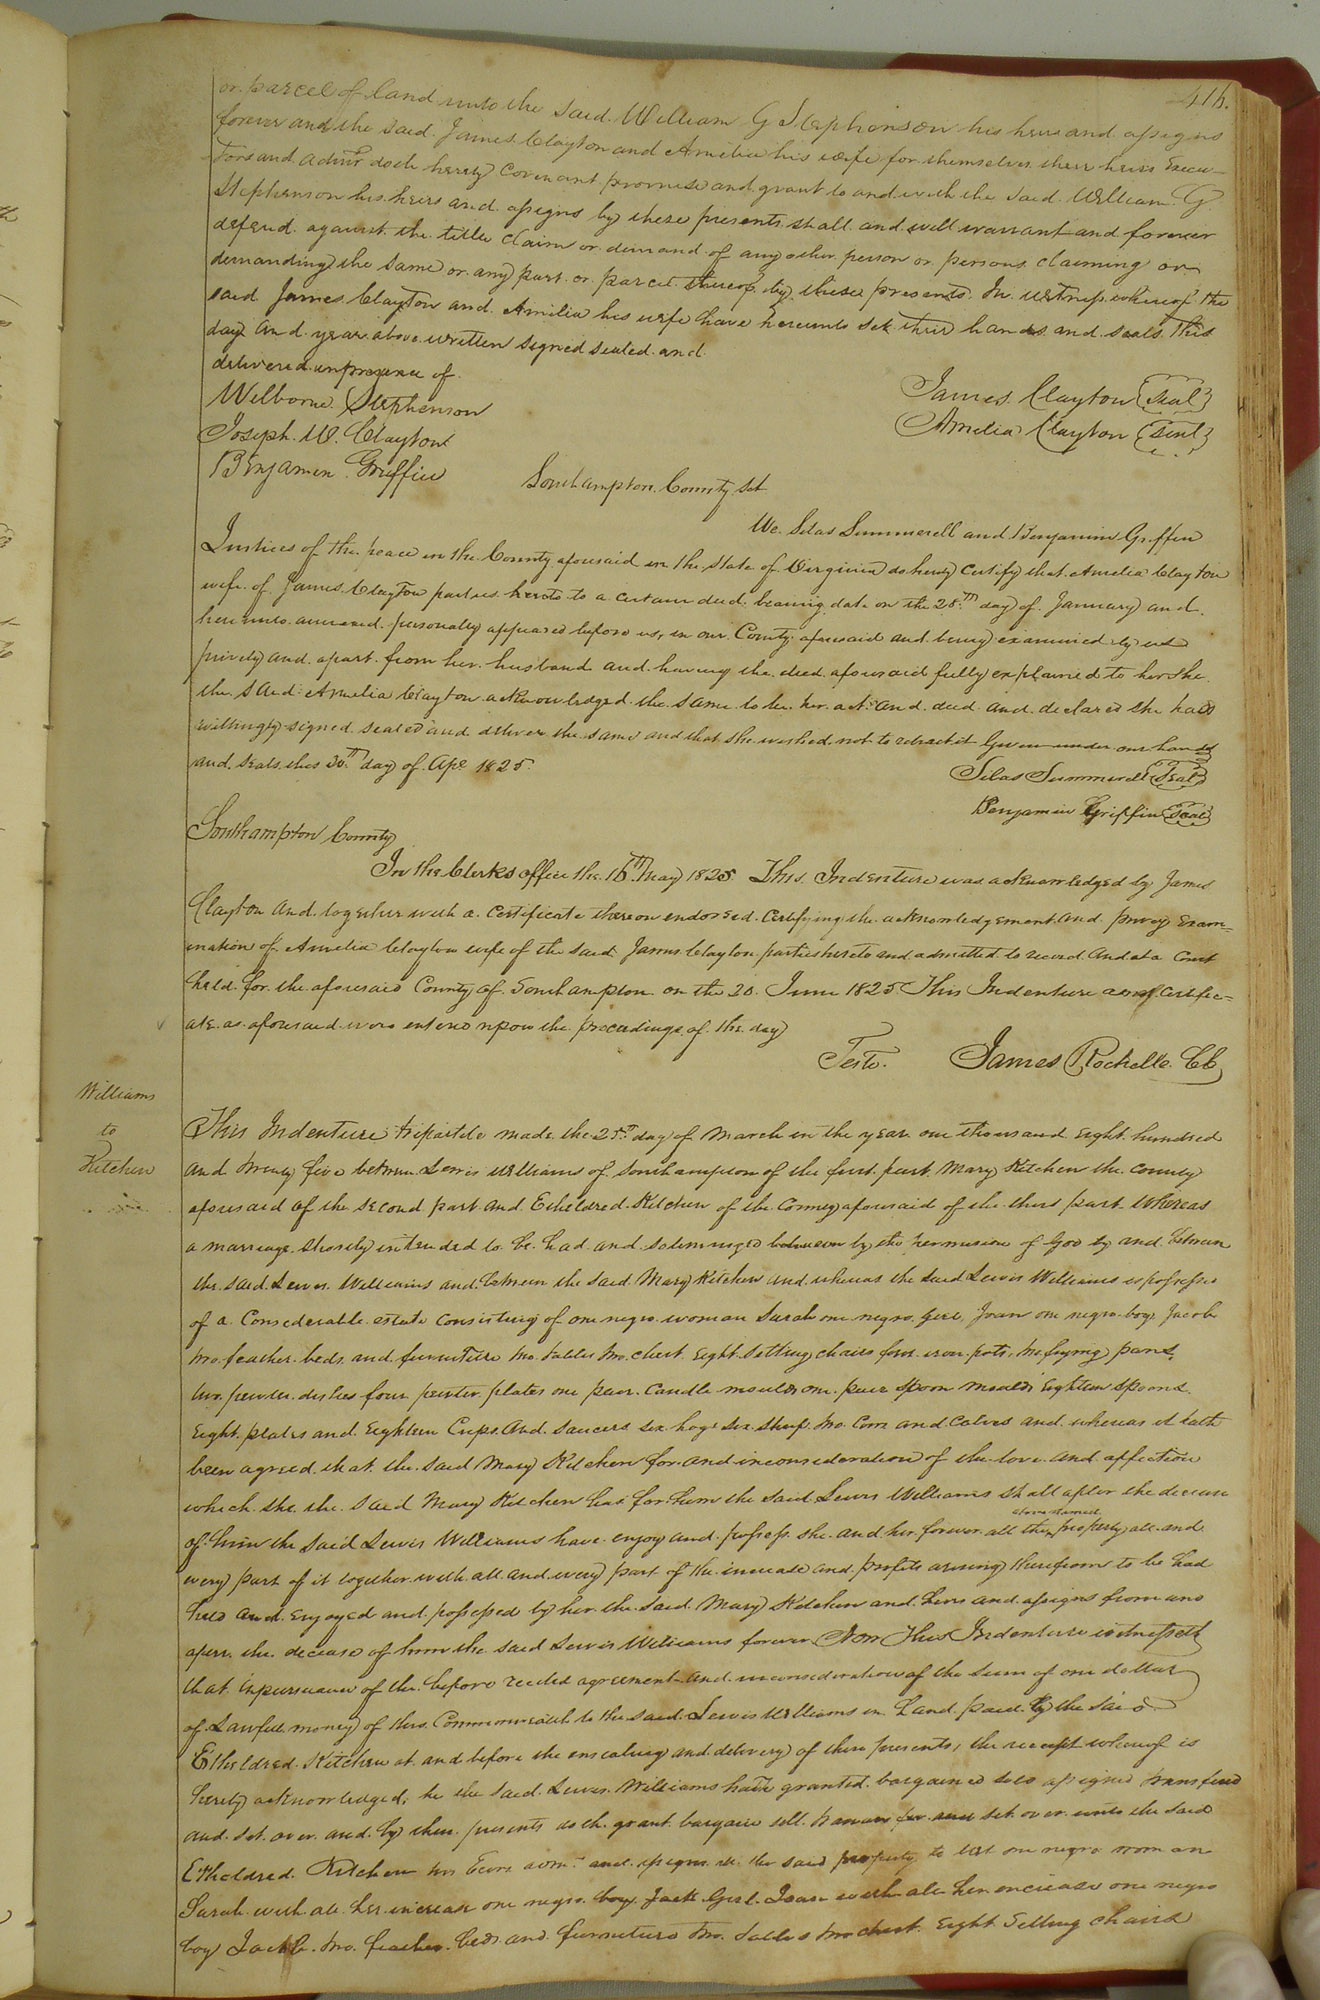 416.
or parcel of land unto the said William G Stephenson his heirs and assigns
forever and the said James Clayton and Amelia his wife for themselves their heirs Execu-
tors and admrs doth hereby Covenant promise and grant to and with the said William G
Stephenson his heirs and assigns by these presents shall and will warrant and forever
defend against the title claim or demand of any other person or persons claiming or
demanding the same or any part or parcel thereof by these presents In witness whereof the
said James Clayton and Amelia his wife have hereunto set their hands and seals this
day and year above written signed sealed and
delivered in presence of
Welborne Stephenson
James Clayton {Seal}
Joseph W. Clayton
Amelia Clayton {Seal}
Benjamin Griffin
Southampton County Sct
We Silas Summerell and Benjamin Griffin
Justices of the peace in the County aforesaid in the State of Virginia do hereby Certify that Amelia Clayton
wife of James Clayton parties hereto to a certain deed bearing date on the 28th day of January and
hereunto annexed personally appeared before us, in our County aforesaid and being examined by us
privily and apart from her husband and having the deed aforesaid fully explained to her she
the said Amelia Clayton acknowledged the same to be her act and deed and declared she had
willingly signed sealed and deliver the same and that she wished not to retract it Given under our hand
and seals this 30th day of Apl 1825.
Silas Summerell {Seal}
Benjamin Griffin {Seal}
Southampton County
In the Clerks office the 16th May 1825 This Indenture was acknowledged by James
Clayton and together with a Certificate thereon endorsed Certifying the acknowledgement and privey Exam-
ination of Amelia Clayton wife of the said James Clayton parties hereto and admitted to record And at a Court
held for the aforesaid County of Southampton on the 20 June 1825 This Indenture and Certific-
ate as aforesaid were entered upon the proceedings of the day
Teste. James Rochelle CC
Williams
to
Kitchen
This Indenture tripartite made the 25th day of March in the year one thousand eight hundred
and twenty five between Lewis Williams of Southampton of the first part Mary Kitchen the County
aforesaid of the second part and Etheldred Kitchen of the County aforesaid of the third part Whereas
a marriage shortly intended to be had and solemnized between by the permission of God by and between
the said Lewis Williams and between the said Mary Kitchen and whereas the said Lewis Williams is possessed
of a Considerable estate consisting of one negro woman Sarah one negro Girl, Joan one negro boy Jacob
two feather beds and furniture two tables two chest Eight Setting chairs four iron pots, two frying pans,
two pewter dishes four pewter plates one pair Candle moulds one pair spoon moulds Eighteen spoons
Eight plates and Eighteen Cups and saucers six hogs six sheep two Cows and Calves and whereas it hath
been agreed that the said Mary Kitchen for and in consideration of the love and affection
which she the said Mary Kitchen has for him the said Lewis Williams shall after the decease
above named
of him the said Lewis Williams have enjoy and possess she and her forever all the property all and
every part of it together with all and every part of the increase and profits arising therefrom to be had
held and enjoyed and possessed by her the said Mary Kitchen and heirs and assigns from and
after the decease of him the said Lewis Williams forever Now This Indenture witnesseth
that in pursuance of the before recited agreement and in consideration of the sum of one dollar
of Lawfull money of this Commonwealth to the said Lewis Williams in hand paid by the said
Etheldred Kitchen at and before the ensealing and delivery of these presents, the receipt whereof is
hereby acknowledged, he the said Lewis Williams hath granted bargained sold assigned transfered
and set over and by these presents doth grant bargain sell transfer and set over unto the said
Etheldred Kitchen his Exrs admrs and assigns all the said property to wit one negro woman
Sarah with all her increase one negro boy Jack Girl Joan with all her increase one negro
boy Jacob two feather beds and furniture two tables two chest Eight Setting chairs